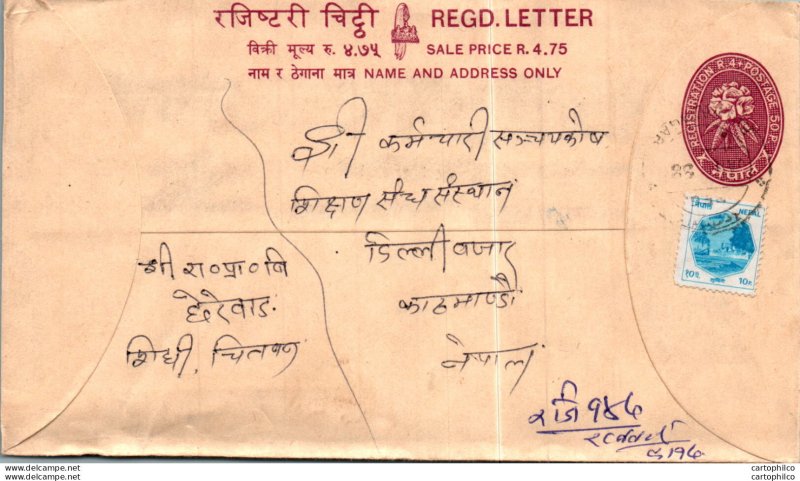 रजिष्टरी चिट्ठी REGD. LETTER
बिक्री मूल्य रु. ४.७५ SALE PRICE R. 4.75
नाम र ठेगाना मात्र NAME AND ADDRESS ONLY
REGISTRATION R. 4 + POSTAGE 50 P.
नेपाल
श्री कर्मचारी सञ्चयकोष
शिक्षण संघ संस्थान
डिल्लीबजार
काठमाण्डौ
नेपाल
नेपाल NEPAL
१०प. 10P.
श्री रा०प्रा०वि
चितवन
रजि
cartophilco
cartophilco
www.delcampe.net
www.delcampe.net